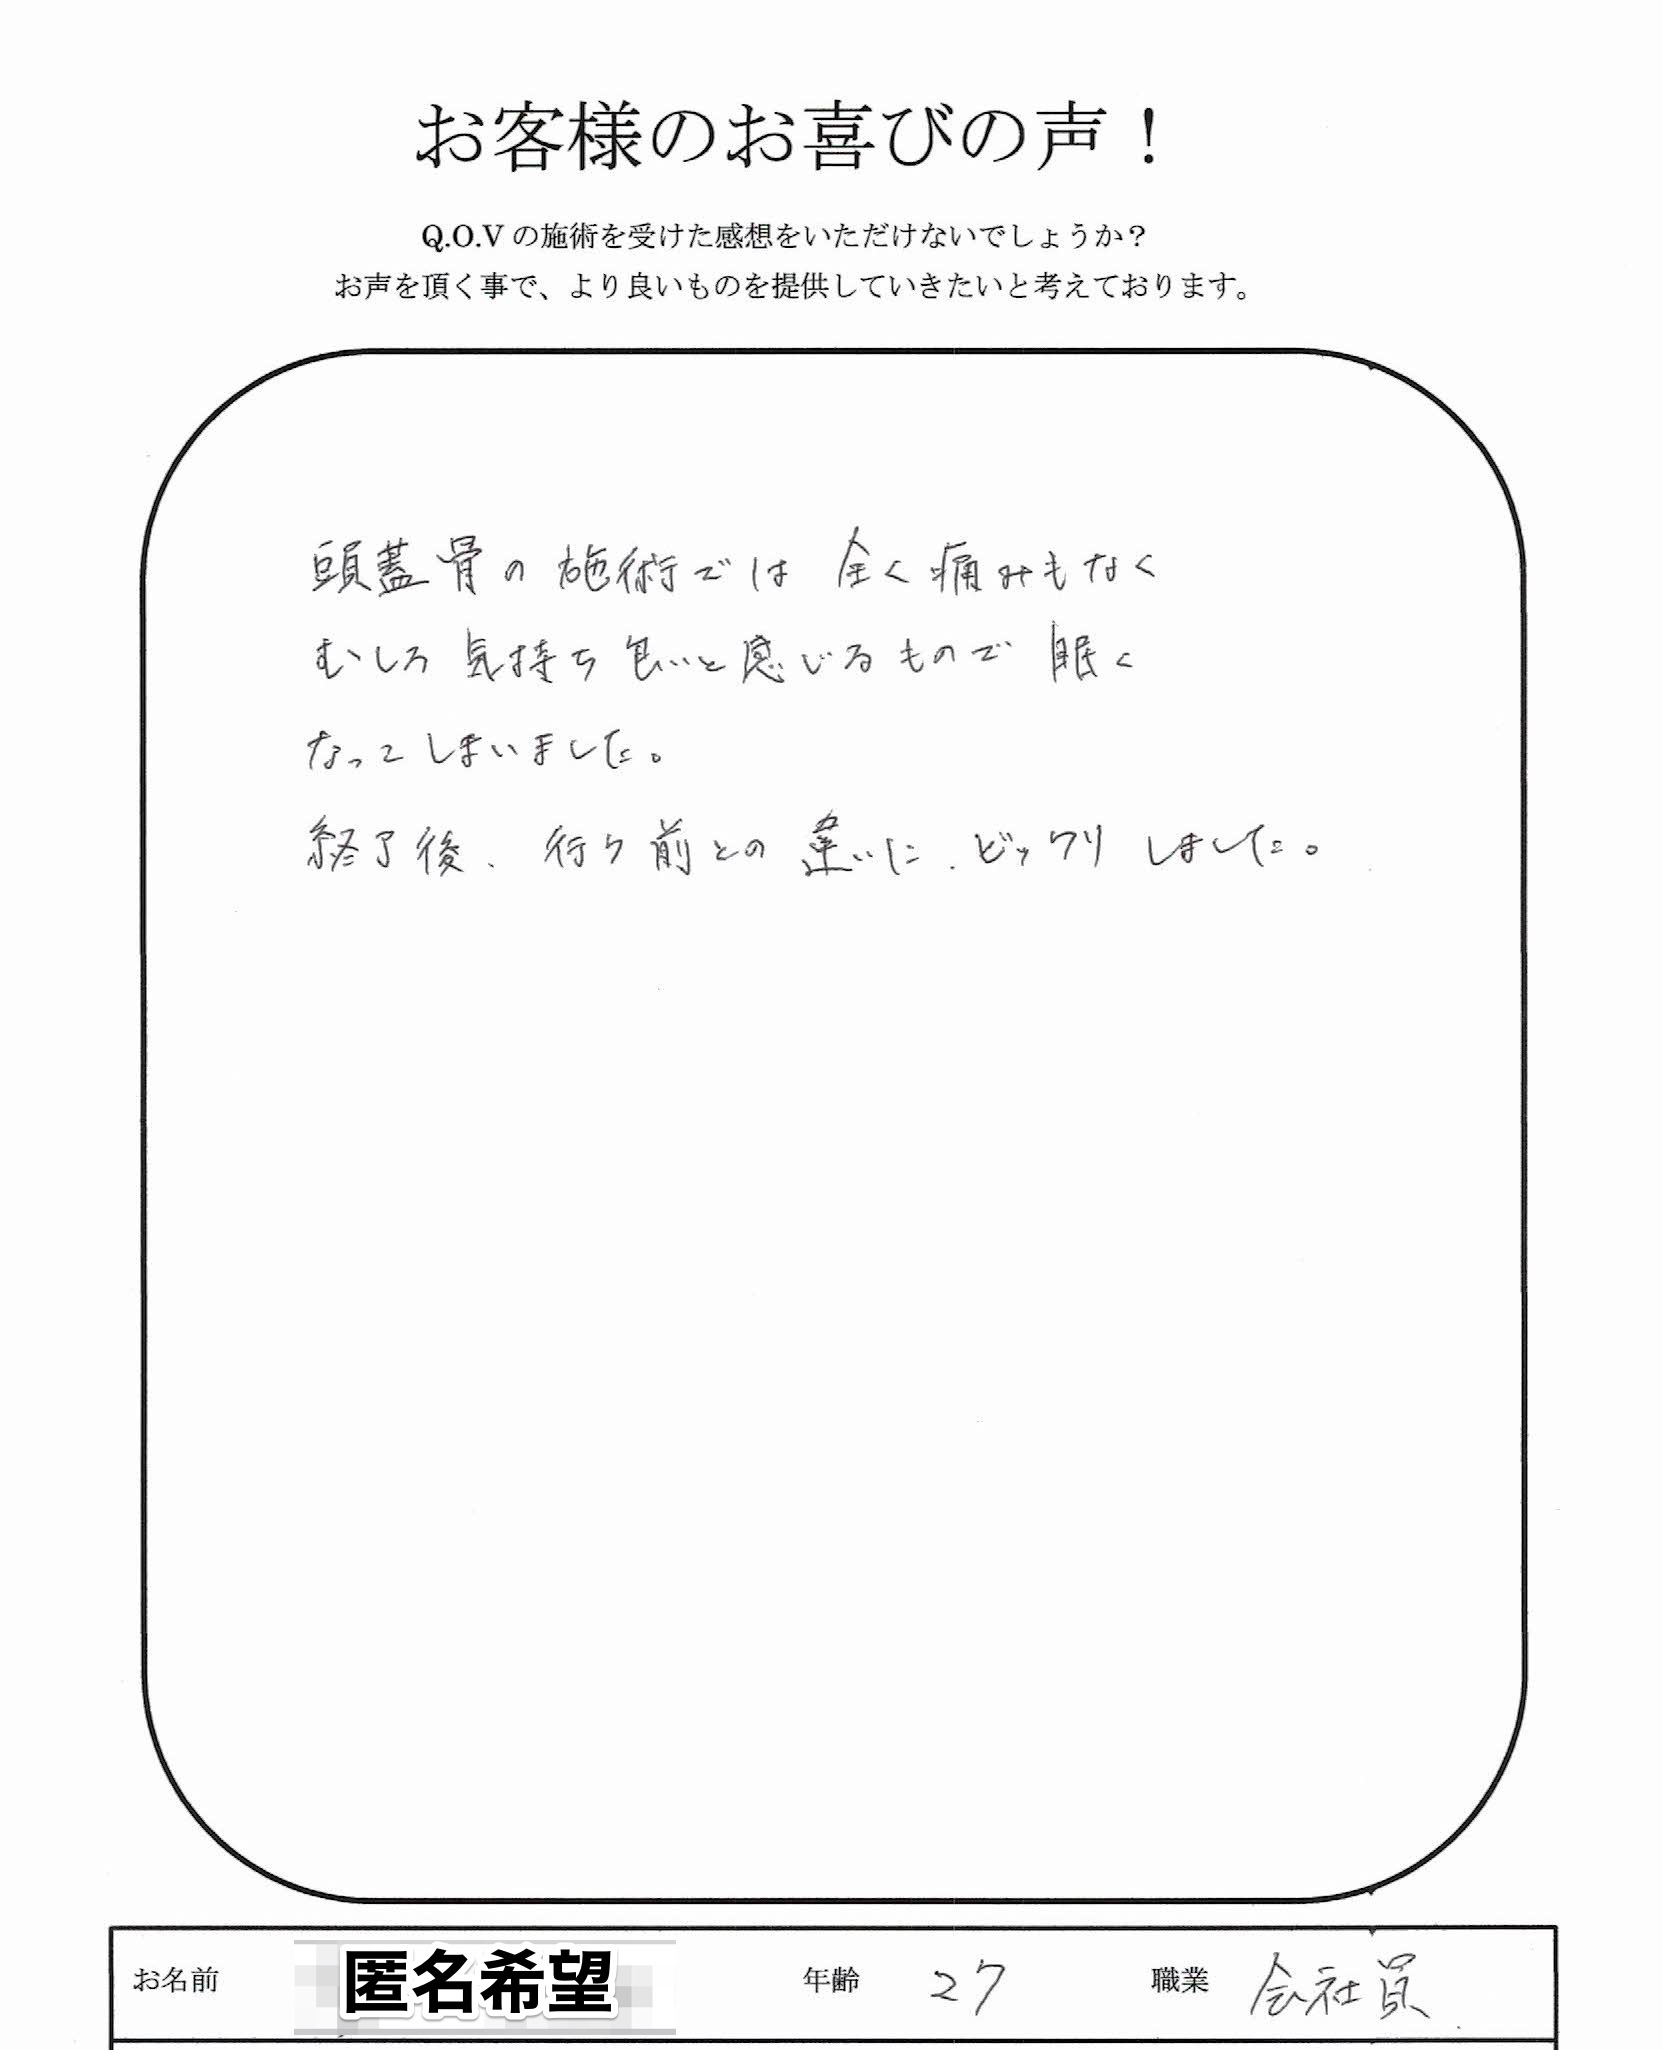 お客様のお喜びの声！
Q.O.Vの施術を受けた感想をいただけないでしょうか？
お声を頂く事で、より良いものを提供していきたいと考えております。
頭蓋骨の施術では全く痛みもなく
むしろ気持ち良いと感じるもので眠く
なってしまいました。
終了後、行う前との違いに、ビックリしました。
お名前 匿名希望 年齢 27 職業 会社員